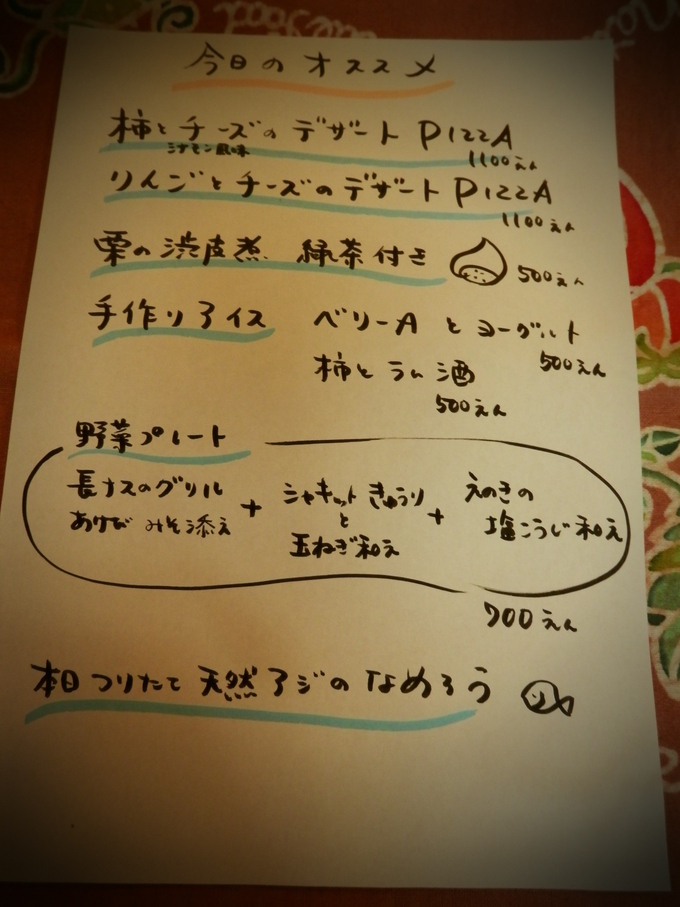 今日のオススメ
柿とチーズのデザートPIZZA
シナモン風味
1100えん
りんごとチーズのデザートPIZZA
1100えん
栗の渋皮煮 緑茶付き 500えん
手作りアイス ベリーAとヨーグルト
500えん
柿とラム酒
500えん
野菜プレート
長ナスのグリル
あけび みそ添え
+
シャキットきゅうり
と
玉ねぎ和え
+
えのきの
塩こうじ和え
700えん
本日つりたて天然アジのなめろう